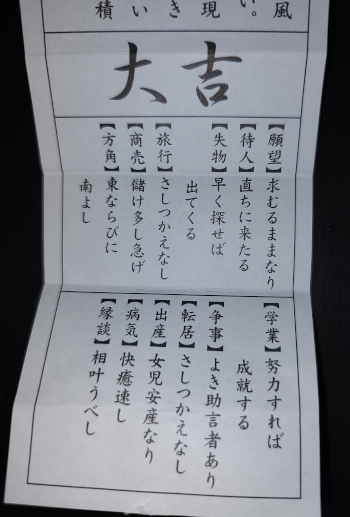 風
い。
現
き
い
積
大吉
【願望】求むるままなり
【待人】直ちに来たる
【失物】早く探せば
出てくる
【旅行】さしつかえなし
【商売】儲け多し急げ
【方角】東ならびに
南よし
【学業】努力すれば
成就する
【争事】よき助言者あり
【転居】さしつかえなし
【出産】女児安産なり
【病気】快癒速し
【縁談】相叶うべし